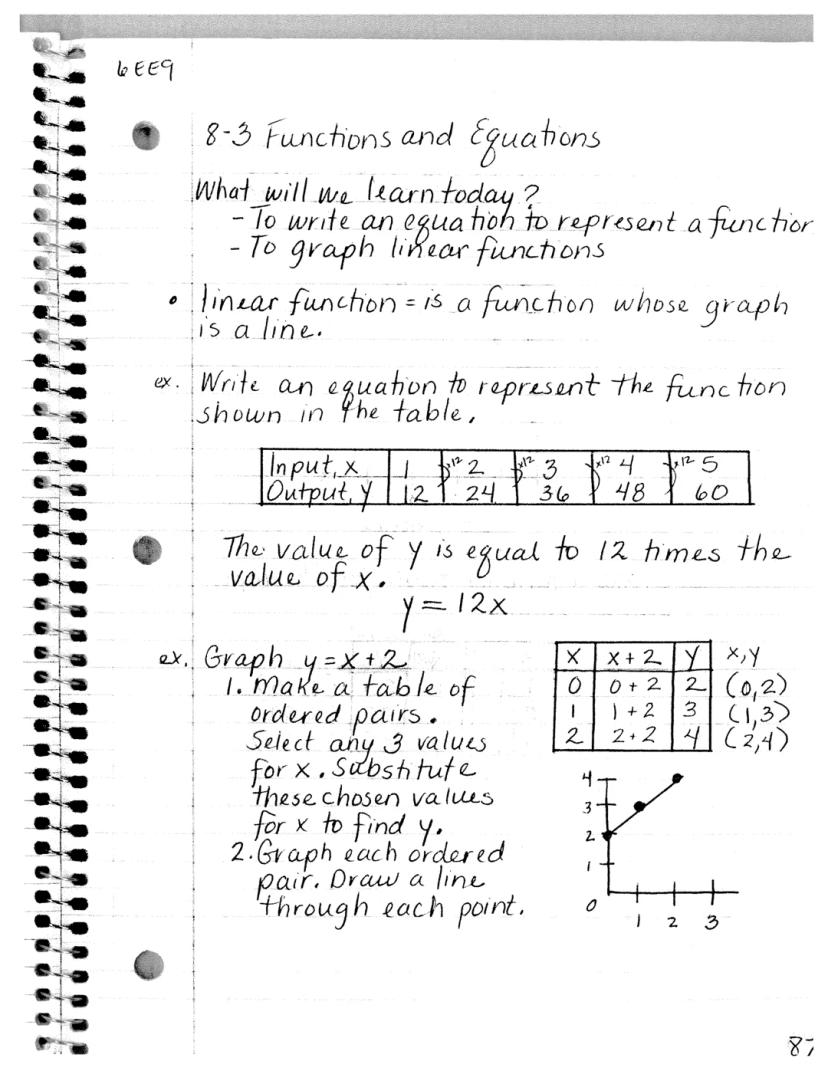 6EE9
8-3 Functions and Equations
What will we learn today?
- To write an equation to represent a function
- To graph linear functions
• linear function = is a function whose graph
is a line.
ex. Write an equation to represent the function
shown in the table.
Input, x 1 x12 2 x12 3 x12 4 x12 5
Output, y 12 24 36 48 60
The value of y is equal to 12 times the
value of x.
y = 12x
ex. Graph y = x + 2
1. Make a table of
ordered pairs.
Select any 3 values
for x. Substitute
these chosen values
for x to find y.
2. Graph each ordered
pair. Draw a line
through each point.
x x+2 y x,y
0 0+2 2 (0,2)
1 1+2 3 (1,3)
2 2+2 4 (2,4)
4
3
2
1
0
1 2 3